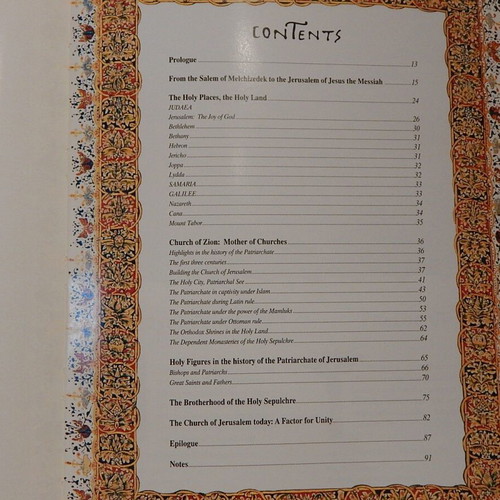 CONTENTS
Prologue 13
From the Salem of Melchizedek to the Jerusalem of Jesus the Messiah 15
The Holy Places, the Holy Land 24
JUDAEA
Jerusalem: The Joy of God 26
Bethlehem 30
Bethany 31
Hebron 31
Jericho 31
Joppa 32
Lydda 32
SAMARIA 33
GALILEE 33
Nazareth 34
Cana 34
Mount Tabor 35
Church of Zion: Mother of Churches 36
Highlights in the history of the Patriarchate 36
The first three centuries 37
Building the Church of Jerusalem 37
The Holy City, Patriarchal See 41
The Patriarchate in captivity under Islam 43
The Patriarchate during Latin rule 50
The Patriarchate under the power of the Mamluks 53
The Patriarchate under Ottoman rule 55
The Orthodox Shrines in the Holy Land 62
The Dependent Monasteries of the Holy Sepulchre 64
Holy Figures in the history of the Patriarchate of Jerusalem 65
Bishops and Patriarchs 66
Great Saints and Fathers 70
The Brotherhood of the Holy Sepulchre 75
The Church of Jerusalem today: A Factor for Unity 82
Epilogue 87
Notes 91